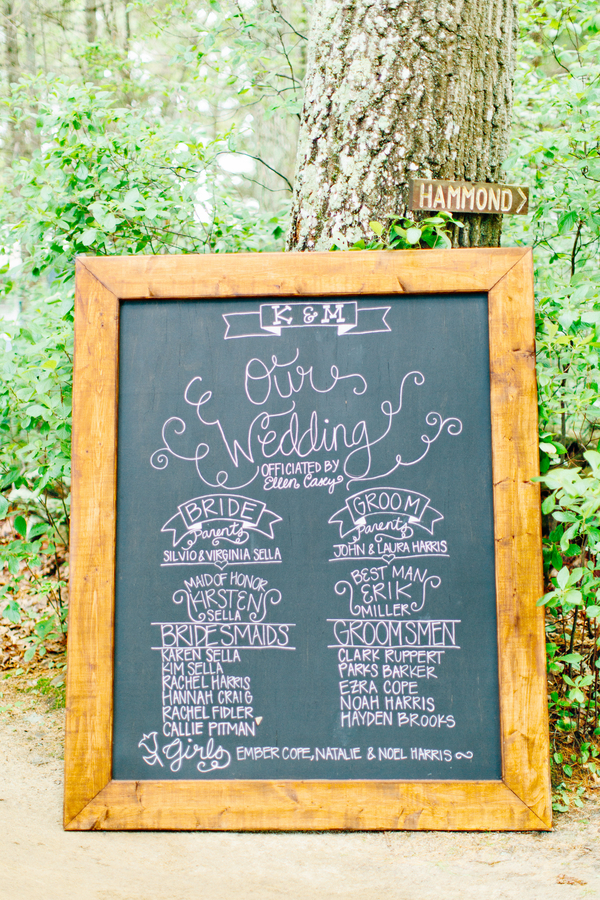 HAMMOND >
K & M
Our
Wedding
OFFICIATED BY
Ellen Casey
BRIDE
Parents
SILVIO & VIRGINIA SELLA
MAID OF HONOR
KIRSTEN
SELLA
BRIDESMAIDS
KAREN SELLA
KIM SELLA
RACHEL HARRIS
HANNAH CRAIG
RACHEL FIDLER
CALLIE PITMAN
GROOM
Parents
JOHN & LAURA HARRIS
BEST MAN
ERIK
MILLER
GROOMSMEN
CLARK RUPPERT
PARKS BARKER
EZRA COPE
NOAH HARRIS
HAYDEN BROOKS
Girls EMBER COPE, NATALIE & NOEL HARRIS